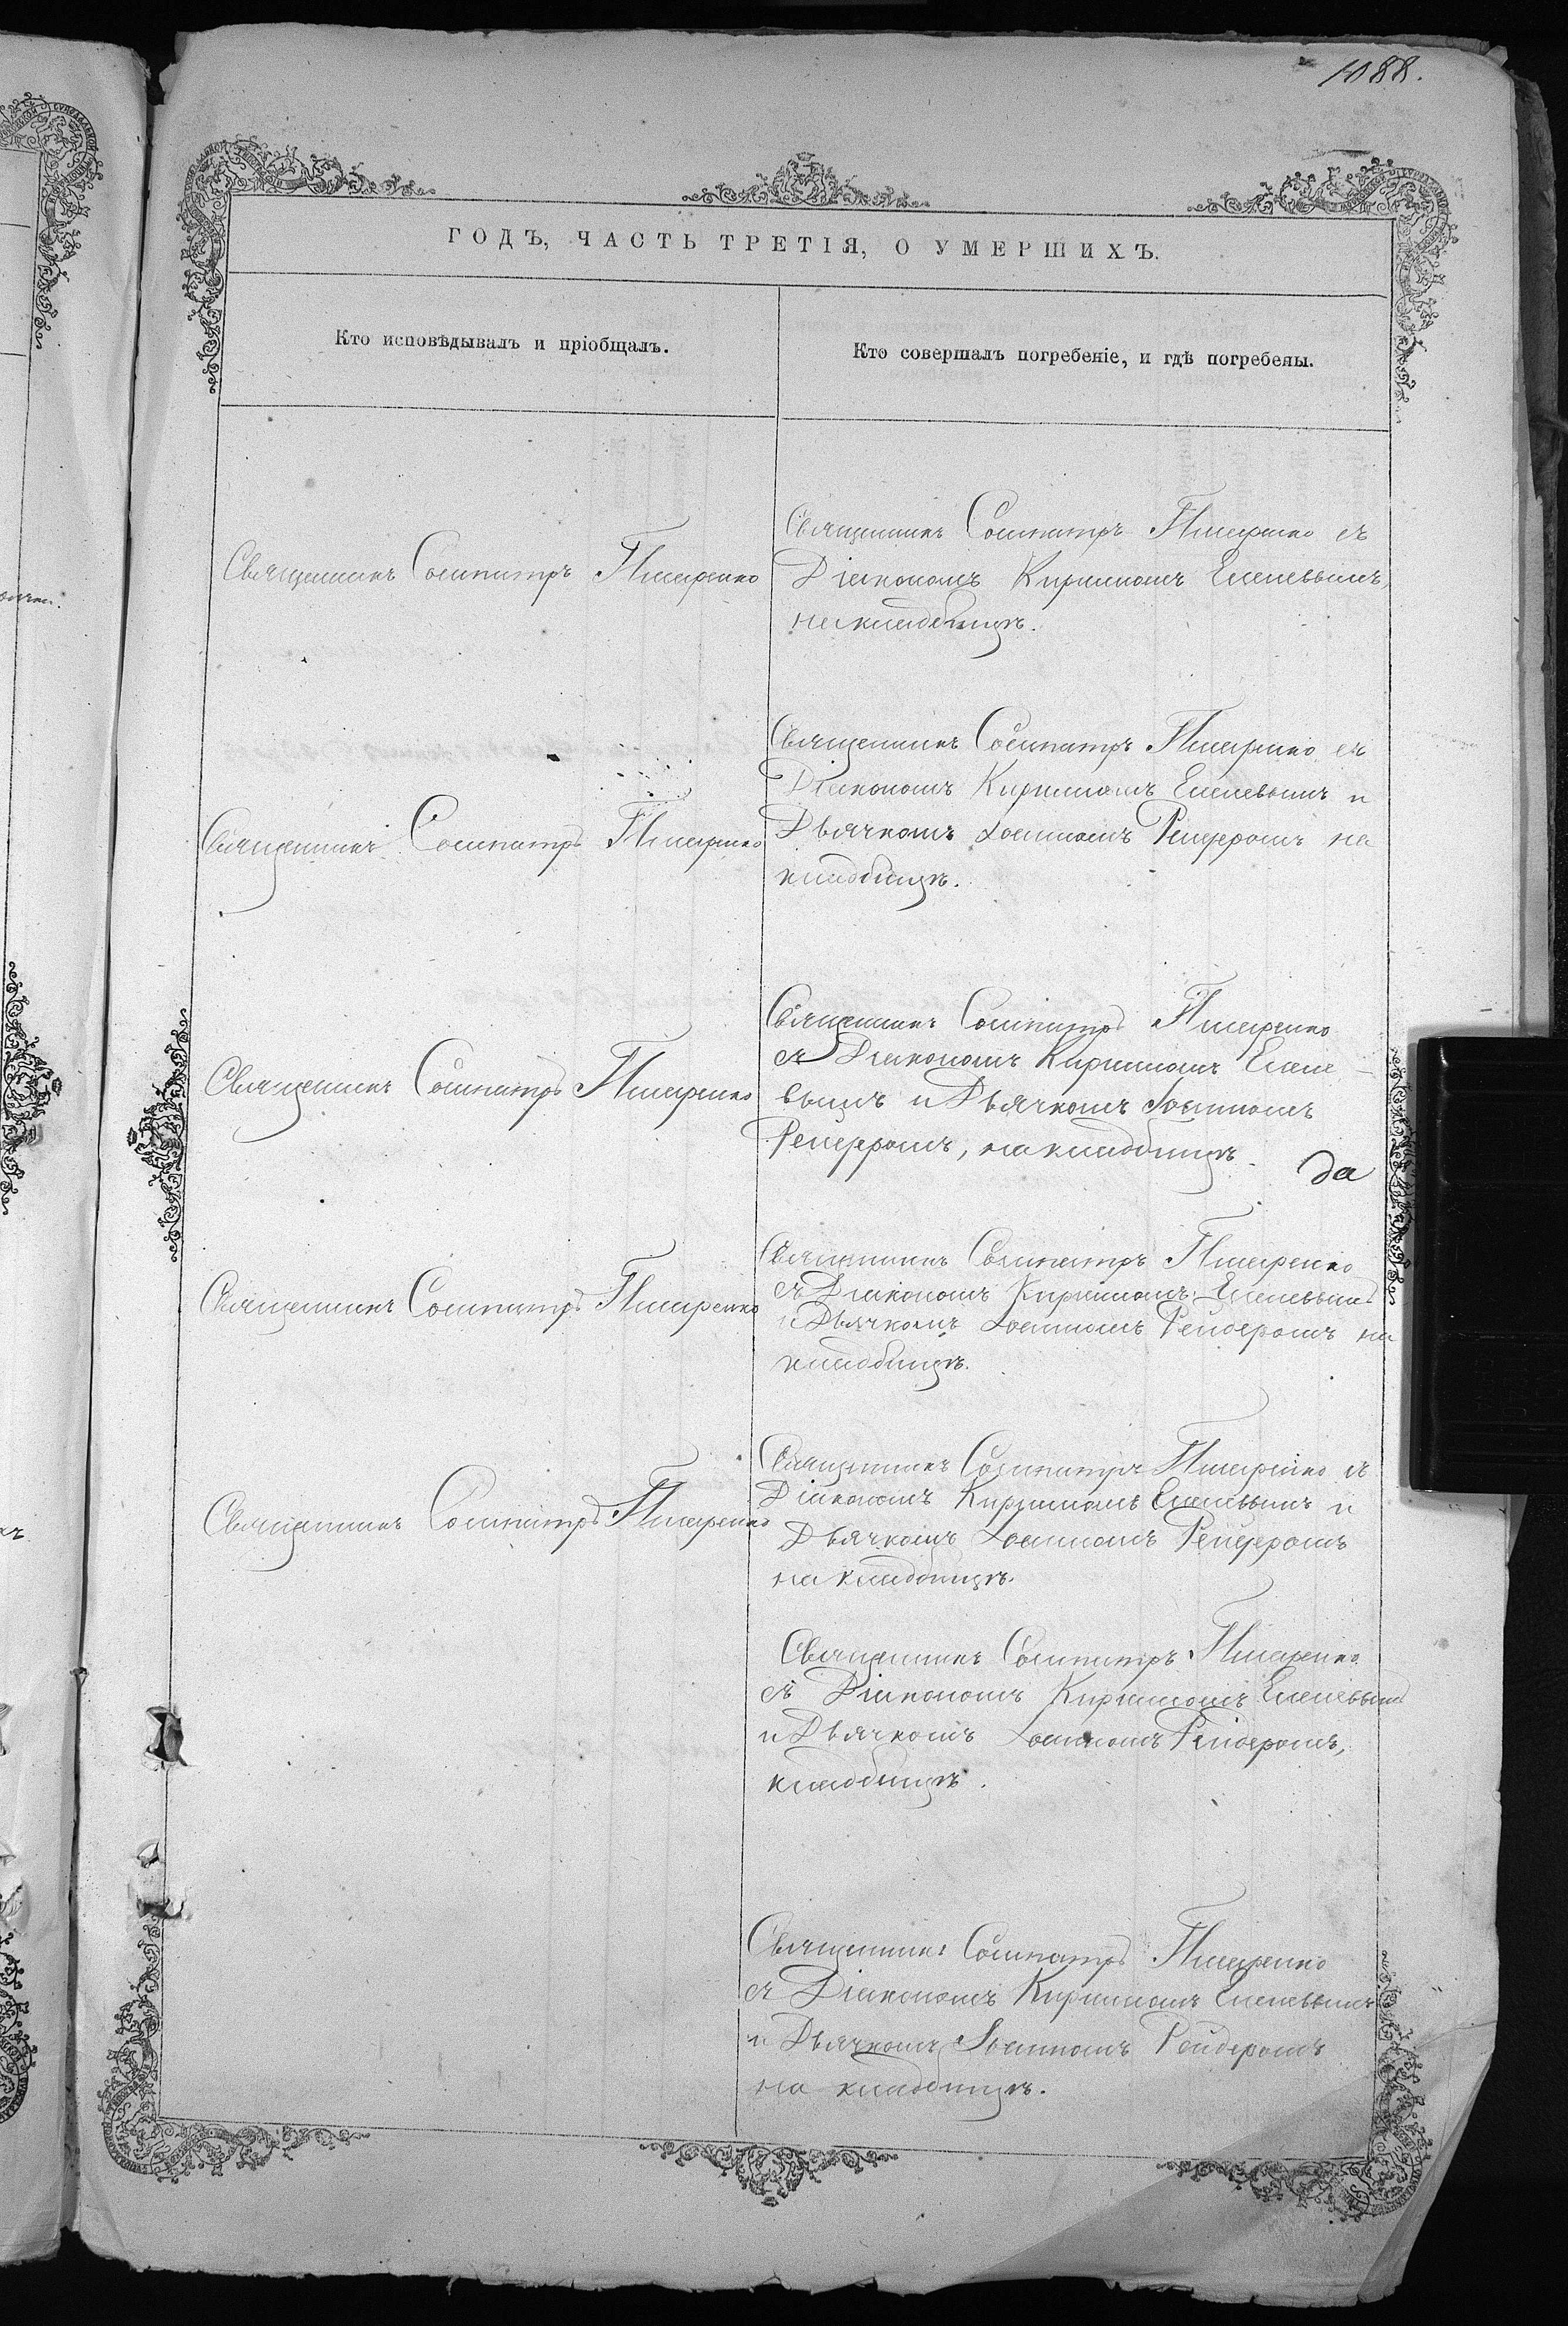 1088.
ГОДЪ, ЧАСТЬ ТРЕТІЯ, О УМЕРШИХЪ.
Кто исповѣдывалъ и пріобщалъ.
Кто совершалъ погребеніе, и гдѣ погребены.
Священникъ Сосипатръ Писаренко
Священникъ Сосипатръ Писаренко съ
Діакономъ Кирилломъ Еленевымъ,
на кладбищѣ.
Священникъ Сосипатръ Писаренко
Священникъ Сосипатръ Писаренко съ
Діакономъ Кирилломъ Еленевымъ и
Дьячкомъ Іоанномъ на
кладбищѣ.
Священникъ Сосипатръ Писаренко
Священникъ Сосипатръ Писаренко
съ Діакономъ Кирилломъ Елене-
вымъ и Дьячкомъ Іоанномъ
на кладбищѣ.
да
Священникъ Сосипатръ Писаренко
Священникъ Сосипатръ Писаренко
съ Діакономъ Кирилломъ Еленевымъ
и Дьячкомъ Іоанномъ Рейдеромъ на
кладбищѣ.
Священникъ Сосипатръ Писаренко
Священникъ Сосипатръ Писаренко съ
Діакономъ Кирилломъ Еленевымъ и
Дьячкомъ Іоанномъ
на кладбищѣ.
Священникъ Сосипатръ Писаренко
съ Діакономъ Кирилломъ Еленевымъ
и Дьячкомъ Іоанномъ Рейдеромъ,
кладбищѣ.
Священникъ Сосипатръ Писаренко
съ Діакономъ Кирилломъ Еленевымъ
и Дьячкомъ Іоанномъ Рейдеромъ
на кладбищѣ.